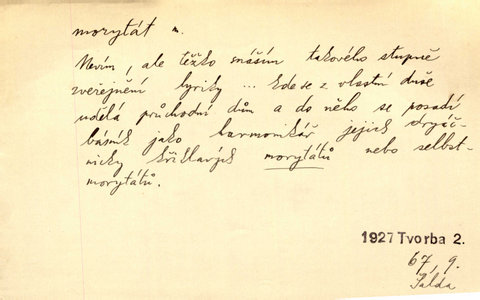 morytát m.
Nevím, ale těžko snáším takového stupně
zveřejnění lyriky ... kde se z vlastní duše
udělá průchodní dům a do něho se posadí
básník jako harmonikář jejich dryáč-
nicky křiklavých morytátů nebo selbst-
morytátů.
1927 Tvorba 2.
67, 9.
Šalda